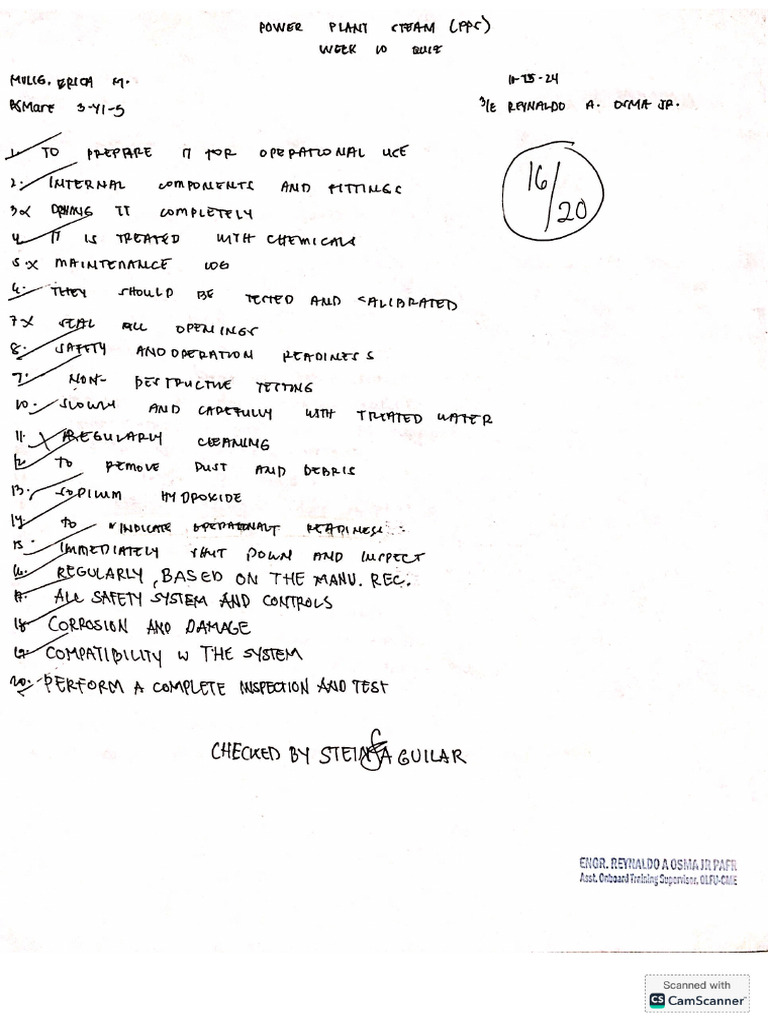 POWER PLANT STEAM (PPS)
WEEK 10 QUIZ
MULIG, ERICA M.
11-15-24
BSMarE 3-Y1-5
3/E REYNALDO A. OSMA JR.
16/20
1. TO PREPARE IT FOR OPERATIONAL USE
2. INTERNAL COMPONENTS AND FITTINGS
3x DRYING IT COMPLETELY
4. IT IS TREATED WITH CHEMICALS
5.x MAINTENANCE LOG
6. THEY SHOULD BE TESTED AND CALIBRATED
7x SEAL ALL OPENINGS
8. SAFETY AND OPERATION READINESS
9. NON-DESTRUCTIVE TESTING
10. SLOWLY AND CAREFULLY WITH TREATED WATER
11. x REGULARLY CLEANING
12. TO REMOVE DUST AND DEBRIS
13. SODIUM HYDROXIDE
14. TO INDICATE READINESS
15. IMMEDIATELY SHUT DOWN AND INSPECT
16. REGULARLY, BASED ON THE MANU. REC.
17. ALL SAFETY SYSTEM AND CONTROLS
18. CORROSION AND DAMAGE
19. COMPATIBILITY W THE SYSTEM
20. PERFORM A COMPLETE INSPECTION AND TEST
CHECKED BY STEIN AGUILAR
ENGR. REYNALDO A OSMA JR PAFR
Asst. Onboard Training Supervisor, OLFU-CME
Scanned with
CS CamScanner